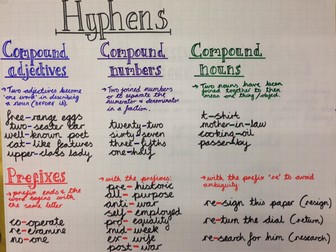 Hyphens
Compound
adjectives
* Two adjectives become
'one word' in describing
a noun (before is).
free-range eggs
two-seater car
well-known poet
cat-like features
upper-class lady
Compound
numbers
* Two joined numbers
or to separate the
numerator & denominator
in a fraction.
twenty-two
sixty-seven
three-fifths
one-half
Compound
nouns
* Two nouns have been
joined together to then
mean one thing/object.
t-shirt
mother-in-law
cooking-oil
passerby
Prefixes
* prefix ends & the word
begins with
the same letter
co-operate
re-examine
no-one
with the prefixes:
pre-historic
all-purpose
anti-war
self-employed
pro-equality
mid-week
ex-wife
post-war
with the prefix 're' to avoid
ambiguity
re-sign this paper (resign)
re-turn the dial (return)
re-search for him (research)